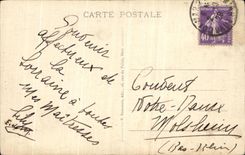 CARTE POSTALE
Souvenir
affectueux de
la
Lorraine à toutes
mes Maîtresses
Couvent
Notre-Dame
Molsheim
(Bas-Rhin)
40